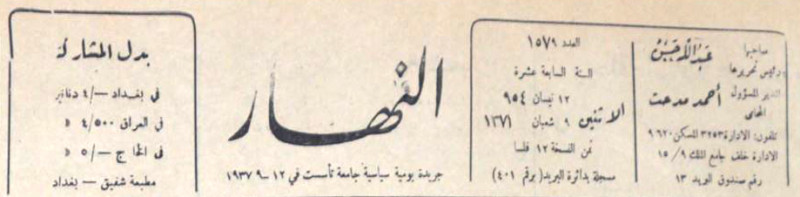 صاحبها
عبدالله حسن
رئيس تحريرها
المدير المسؤول
أحمد مدحت
المحامي
تلفون: الادارة ٣٢٥٣ المسكن ٩٦٢٠
الادارة خلف جامع الملك ٩/ ١٥
رقم صندوق البريد ١٣
العدد ١٥٧٩
السنة السابعة عشرة
الاثنين
١٢ نيسان ٩٥٤
٩ شعبان ١٣٧١
ثمن النسخة ١٢ فلسا
مسجلة بدائرة البريد (برقم ٤٠١)
النهار
جريدة يومية سياسية جامعة تأسست في ١٢ــ٩ ١٩٣٧
بدل المشاركة
في بغداد —/٤ دنانير
في العراق ٤/٥٠٠ »
في الخارج —/٥ »
مطبعة شفيق — بغداد